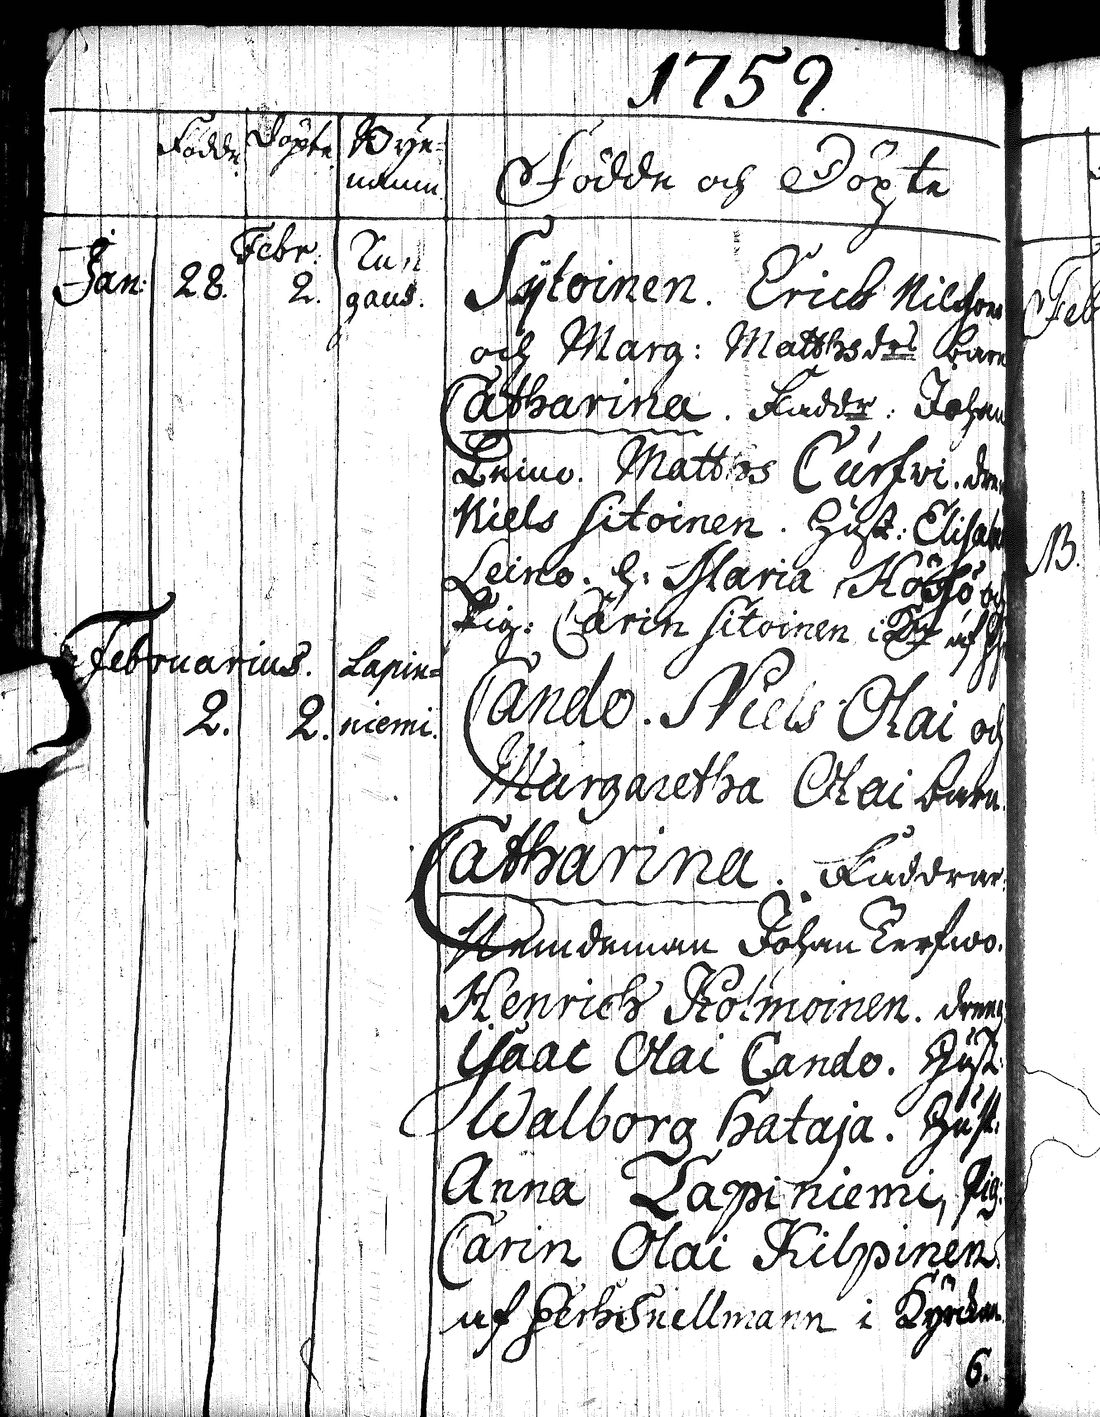 1759.
Födde Döpte Byenamn Födde och Döpte
Jan: 28. Febr. 2. Kangans. Sÿtoinen. Erich Nilsson
och Marg: Matthsdrs barn
Catharina. Faddr: Johan
Leino. Matths Cursvi. dren
Niels Sitoinen. Hust: Elisabe
Leino. H: Maria och
Pig: Carin Sitoinen i af
Februarius. Lapin=
2. 2. niemi. Cando. Niels Olai och
Margaretha Olai barn
Catharina. Faddrar
Nemdeman Johan Kerfwo.
Henrich Kolmoinen. dreng
Isaac Olai Cando. Hust:
Walborg Hataja. Hust.
Anna Lapiniemi, Pig:
Carin Olai Kilpinen.
af Herh Snellmann i Kyrckan.
6.
Feb
B.